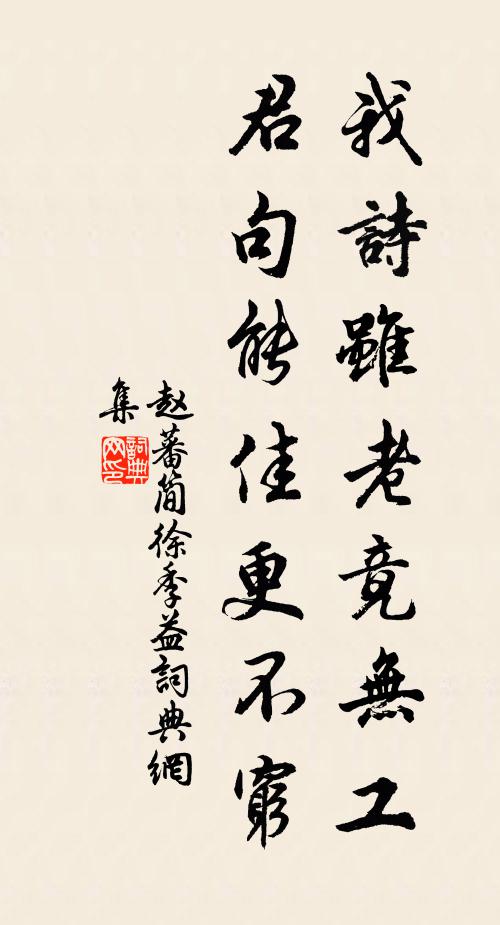 我詩雖老竟無工
君句能佳更不窮
赵蕃簡徐季益詞典網
集
詞典網印